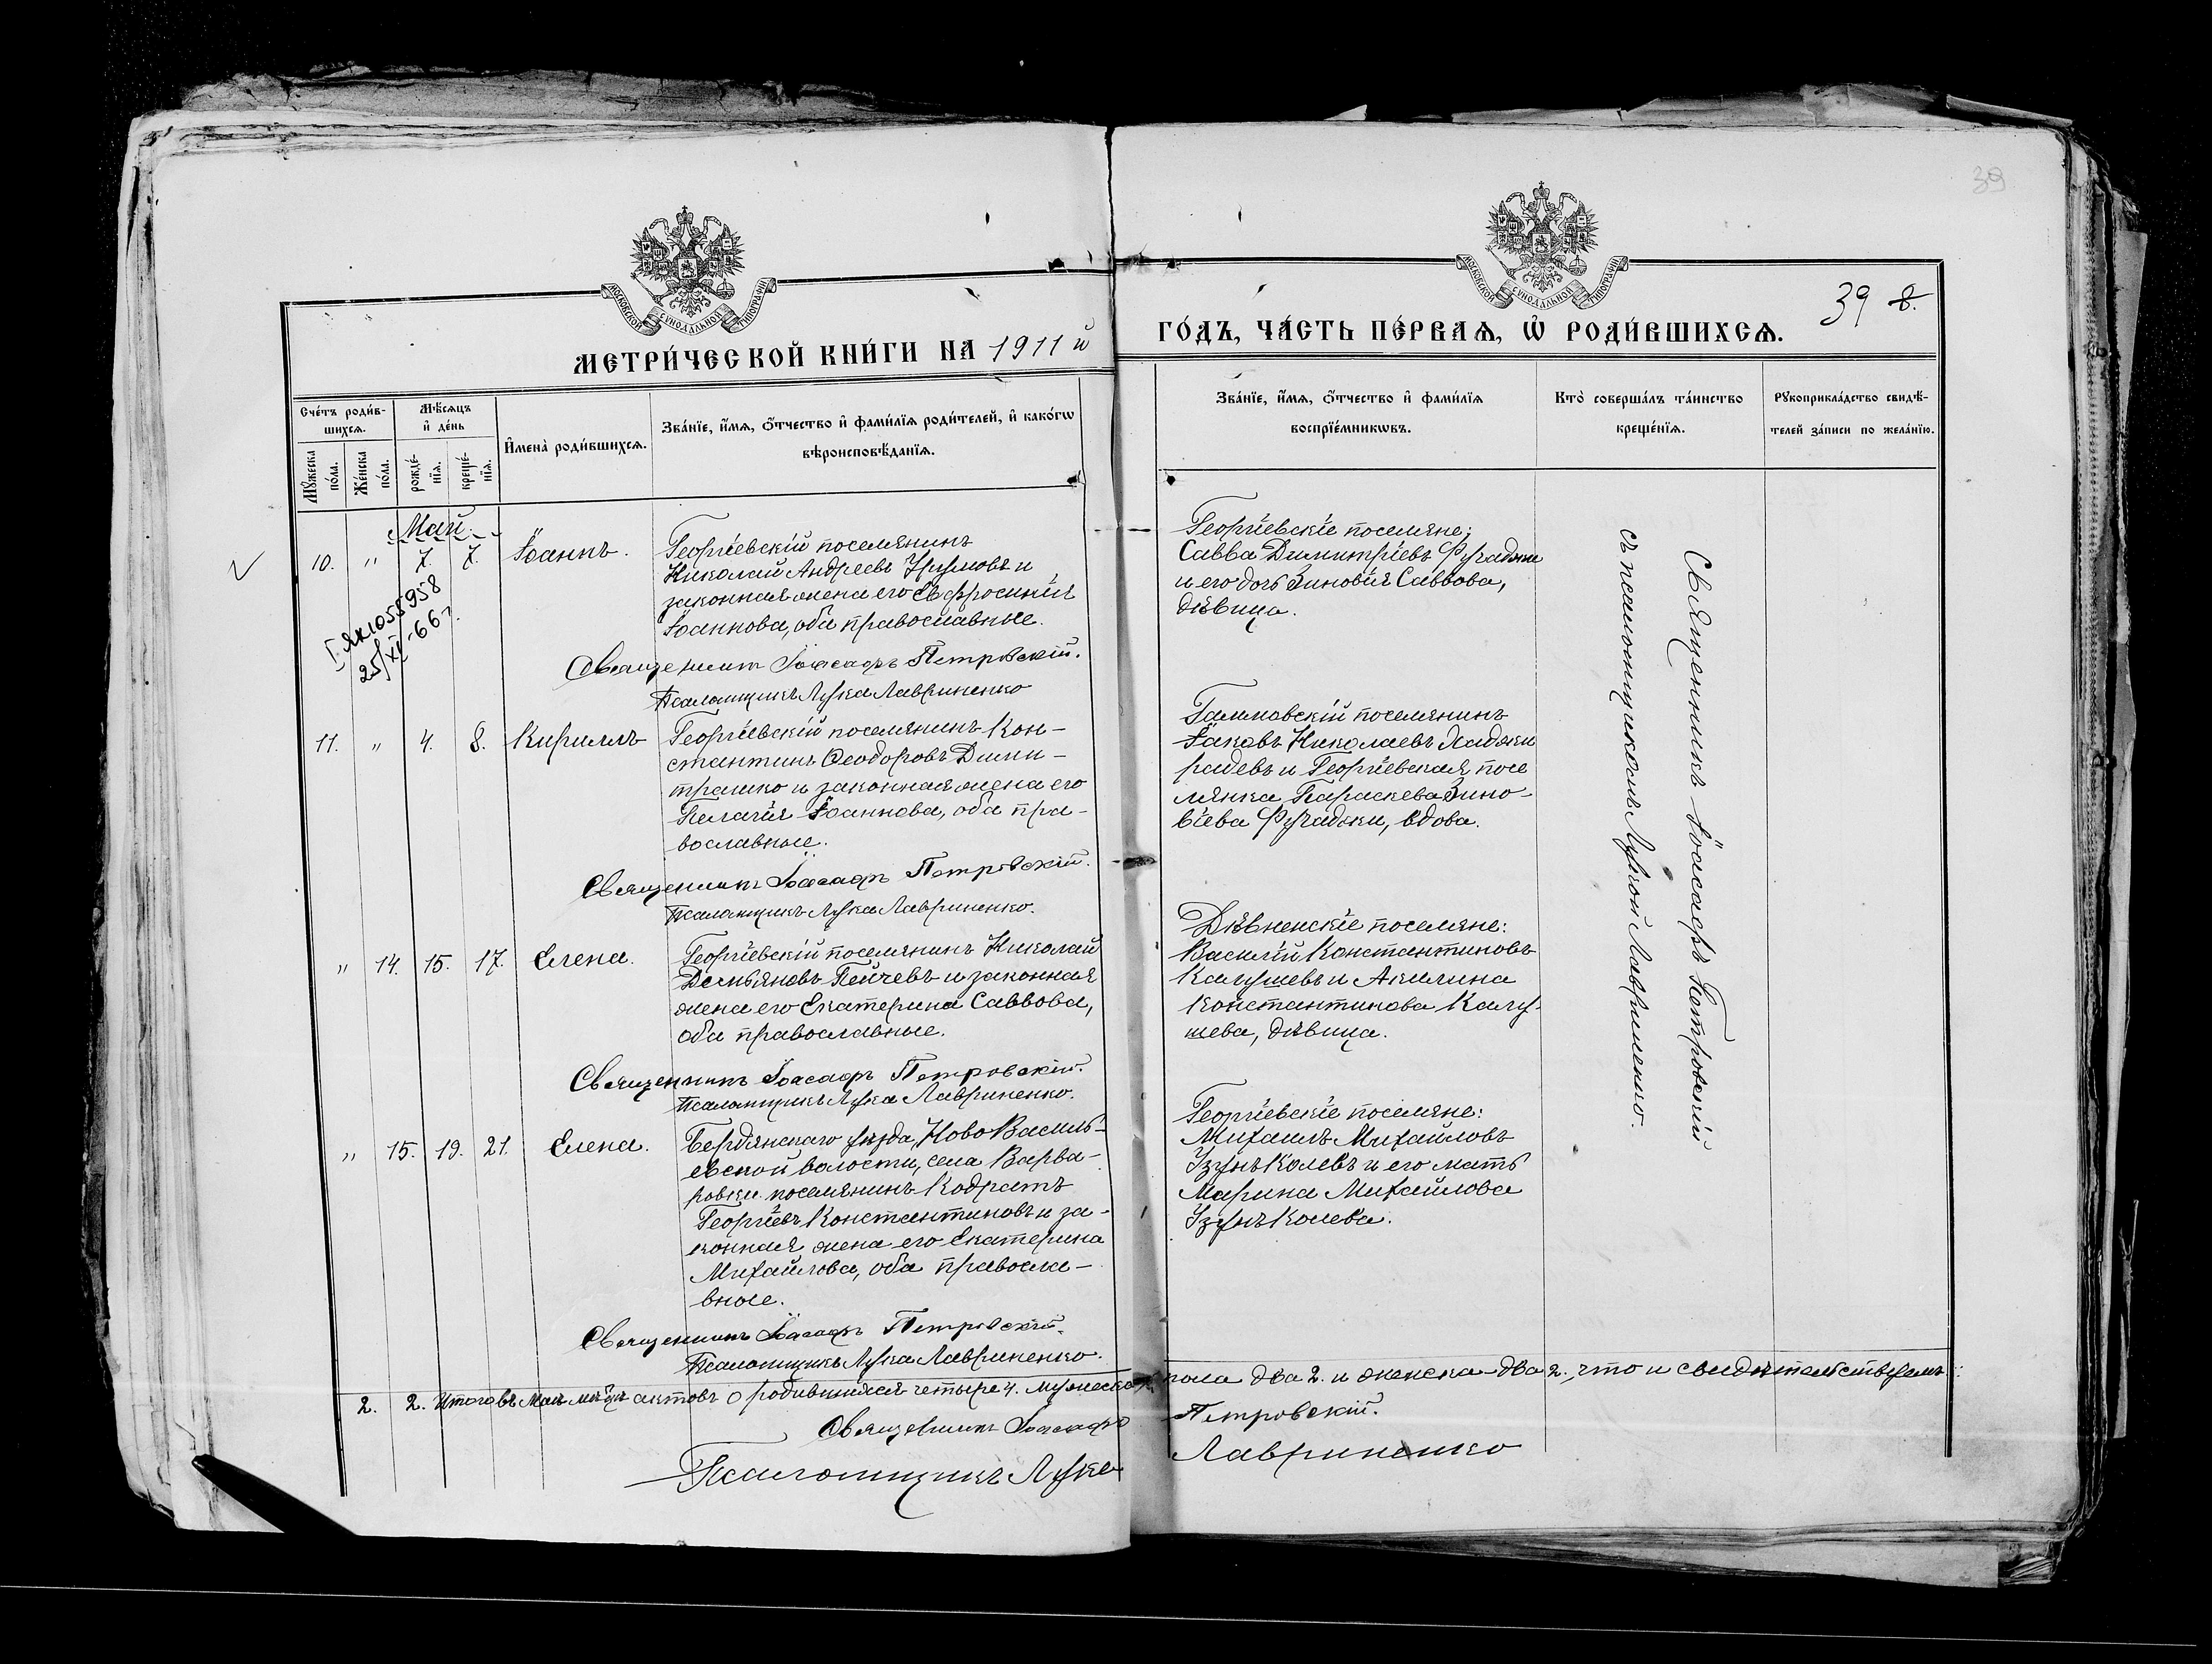 39
МОСКОВСКОЙ СѴНОДАЛЬНОЙ ТИПОГРАФІИ
МОСКОВСКОЙ СѴНОДАЛЬНОЙ ТИПОГРАФІИ
39 8.
МЕТРИ́ЧЕСКОЙ КНИ́ГИ НА 1911 й
ГО́ДЪ, ЧА́СТЬ ПЕ́РВАѦ, Ѡ҆ РОДИ́ВШИХСѦ.
Сче́тъ роди́в-
шихсѧ.
Мꙋ́жеска по́ла.
Же́нска по́ла.
Мѣ́сѧцъ
и҆ де́нь
рожде́-
нїѧ.
креще́-
нїѧ.
И҆мена̀ роди́вшихсѧ.
Зва́нїе, и҆́мѧ, ѻ҆́тчество и҆ фами́лїѧ роди́телей, и҆ како́гѡ
вѣроисповѣ́данїѧ.
Зва́нїе, и҆́мѧ, ѻ҆́тчество и҆ фами́лїѧ
воспрїе́мникѡвъ.
Кто̀ соверша́лъ та́инство
креще́нїѧ.
Рꙋкоприкла́дство свидѣ́-
телей за́писи по жела́нїю.
Май.
10. " 7. 7. Іоаннъ.
Георгіевскій поселянинъ
Николай Андреевъ Урумовъ и
законная жена его Евфросинія
Іоаннова, оба православные.
I ЯК 1055958
25/XI-66 г.
Священникъ Іоасафъ Петровскій.
Псаломщикъ Лука Лавриненко
Георгіевскіе поселяне:
Савва Димитріевъ Фучаджи
и его дочь Зиновія Саввова,
дѣвица.
11. " 4. 8. Кириллъ
Георгіевскій поселянинъ Кон-
стантинъ Ѳеодоровъ Дими-
трашко и законная жена его
Пелагія Іоаннова, оба пра-
вославные.
Священникъ Іоасафъ Петровскій.
Псаломщикъ Лука Лавриненко.
поселянинъ
Іаковъ Николаевъ Хаджи
радевъ и Георгіевская посе
лянка Параскева Зино-
віева Фучаджи, вдова.
" 14. 15. 17. Елена.
Георгіевскій поселянинъ Николай
Демьяновъ Пейчевъ и законная
жена его Екатерина Саввова,
оба православные.
Священникъ Іоасафъ Петровскій.
Псаломщикъ Лука Лавриненко.
Дѣвненскіе поселяне:
Василій Константиновъ
Калушевъ и Акилина
Константинова Калу-
шева, дѣвица.
" 15. 19. 21. Елена.
Бердянскаго уѣзда, Ново Василь-
евской волости, села Варва-
ровки поселянинъ Кодратъ
Георгіевъ Константиновъ и за-
конная жена его Екатерина
Михайлова, оба правосла-
вные.
Священникъ Іоасафъ Петровскій.
Псаломщикъ Лука Лавриненко.
Георгіевскіе поселяне:
Михаилъ Михайловъ
Узунъ Колевъ и его мать
Марина Михайлова
Узунъ Колева.
Священникъ Іоасафъ Петровскій
съ псаломщикомъ Лукой Лавриненко.
2. 2. Итого въ Маѣ мѣ-цѣ актовъ о родившихся четыре 4. мужеска пола два 2. и женска два 2., что и свидѣтельствуемъ:
Священникъ Іоасафъ Петровскій.
Псаломщикъ Лука Лавриненко